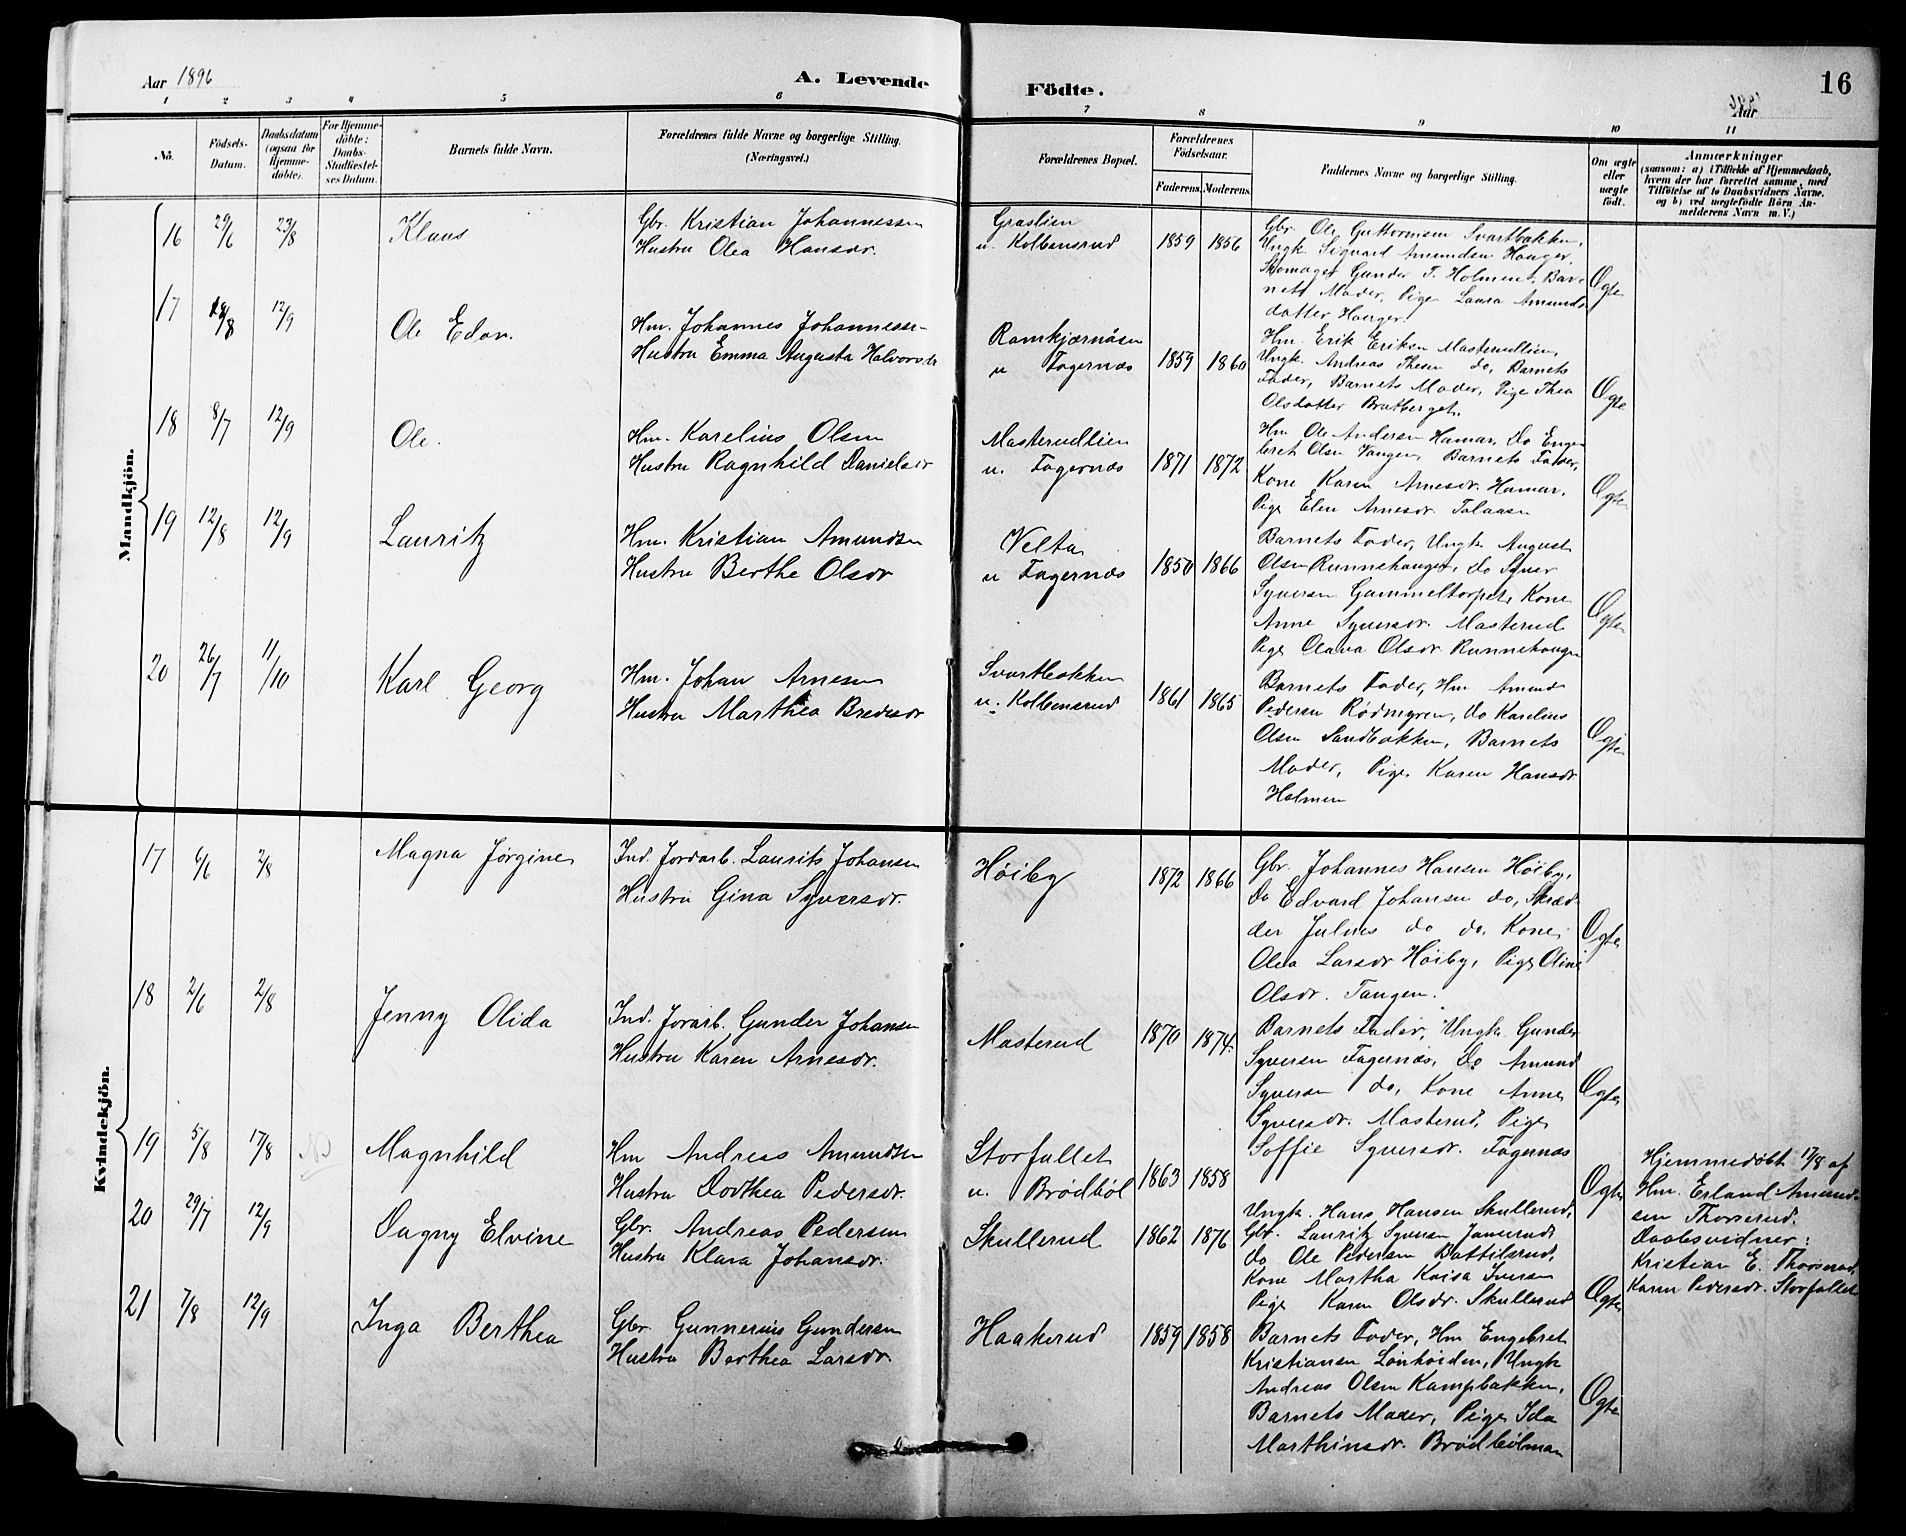 Aar 1896
A. Levende Födte.
16
Aar
1 2 3 4 5 6 7 8 9 10 11
No.
Födsels-
Datum.
Daabsdatum
(ogsaa for
Hjemme-
döbte).
For Hjemme-
döbte:
Daabs-
Stadfæstel-
ses Datum.
Barnets fulde Navn.
Forældrenes fulde Navne og borgerlige Stilling.
(Næringsvei.)
Forældrenes Bopæl.
Forældrenes
Födselsaar.
Faderens. Moderens.
Faddernes Navne og borgerlige Stilling.
Om ægte
eller
uægte
födt.
Anmærkninger
(saasom: a) i Tilfælde af Hjemmedaab,
hvem der har forrettet samme, med
Tilföielse af to Daabsvidners Navne,
og b) ved uægtefödte Börn An-
melderens Navn m. V.)
Mandkjön.
16 29/6 23/8 Klaus
Gbr. Kristian Johannessen
Hustru Olea Hansdr.
Graslien
u. Kolbensrud
1859 1856
Gbr. Ole Guttormsen Svartbakken,
Ungk. Sigvard Amundsen Hauger,
Skomager Gunder T. Holmen, Bar-
nets Moder, Pige Laura Amunds-
datter Hauger.
Ægte
17 18/8 12/9 Ole Edon.
Hm. Johannes Johannessen
Hustru Emma Augusta Halvorsdr
Ramkjærnåsen
u Fagernæs
1859 1860
Hm. Erik Eriksen Masterudlien,
Ungk. Andreas Thesen do, Barnets
Fader, Barnets Moder, Pige Thea
Olsdatter Bratberget.
Ægte
18 8/7 12/9 Ole.
Hm. Karelius Olsen
Hustru Ragnhild Danielsdr
Masterudlien
u. Fagernæs
1871 1872
Hm Ole Andersen Hamar, Do Enge-
bret Olsen Vangen, Barnets Fader,
Kone Karen Arnesdr. Hamar,
Pige Elen Arnesdr. Talaasen
Ægte
19 12/8 12/9 Lauritz
Hm. Kristian Amundsen
Hustru Berthe Olsdr
Velta
u Fagernæs
1850 1866
Barnets Fader, Ungk August
Olsen Runnehaugen, Do Syver
Syversen Gammeltorpet, Kone
Anne Syversdr. Masterud
Pige Olava Olsdr. Runnehaugen
Ægte
20 26/7 11/10 Karl Georg
Hm. Johan Arnesen
Hustru Marthea Bredesdr
Svartbakken
u. Kolbensrud
1861 1865
Barnets Fader, Hm Amund
Pedersen Rødmyren, Do Karelius
Olsen Sandbakken, Barnets
Moder, Pige Karen Hansdr
Holmen
Ægte
Kvindekjön.
17 6/6 2/8 Magna Jørgine
Ind. Jordarb. Laurits Johansen
Hustru Gina Syversdr.
Høiby
1872 1866
Gbr. Johannes Hansen Høiby,
Do Edvard Johansen do, Skræd-
der Julius do do, Kone
Olea Larsdr Høiby, Pige Oline
Olsdr. Tangen.
Ægte
18 2/6 2/8 Jenny Olida
Ind. Jorarb. Gunder Johansen
Hustru Karen Arnesdr.
Masterud
1870 1874.
Barnets Fader, Ungk Gunder
Syversen Fagernæs, Do Amund
Syversen do, Kone Anne
Syversdr. Masterud, Pige
Soffie Syversdr. Fagernæs
Ægte
19 5/8 17/8 Magnhild
Hm Andreas Amundsen
Hustru Dorthea Pedersdr.
Storfallet
u. Brödböl
1863 1858
Ægte
Hjemmedøbt 17/8 af
Hm. Erland Amund-
sen Thorserud.
Daabsvidner:
Kristian E. Thorserud,
Karen Pedersdr. Storfallet
20 29/7 12/9 Dagny Elvine
Gbr. Andreas Pedersen
Hustru Klara Johansdr.
Skullerud
1862 1876
Ungk. Hans Hansen Skullerud,
Gbr. Lauritz Syversen Janserud,
Do Ole Pedersen Battilsrud,
Kone Martha Kaisa Iversen
Pige Karen Olsdr. Skullerud
Ægte
21 7/8 12/9 Inga Berthea
Gbr Gunnerius Gundersen
Hustru Berthea Larsdr.
Haakerud
1859 1858
Barnets Fader, Hm Engebret
Kristiansen Lönhöiden, Ungk
Andreas Olsen Kampbakken,
Barnets Moder, Pige Ida
Marthinsdr. Brödbölmoen
Ægte